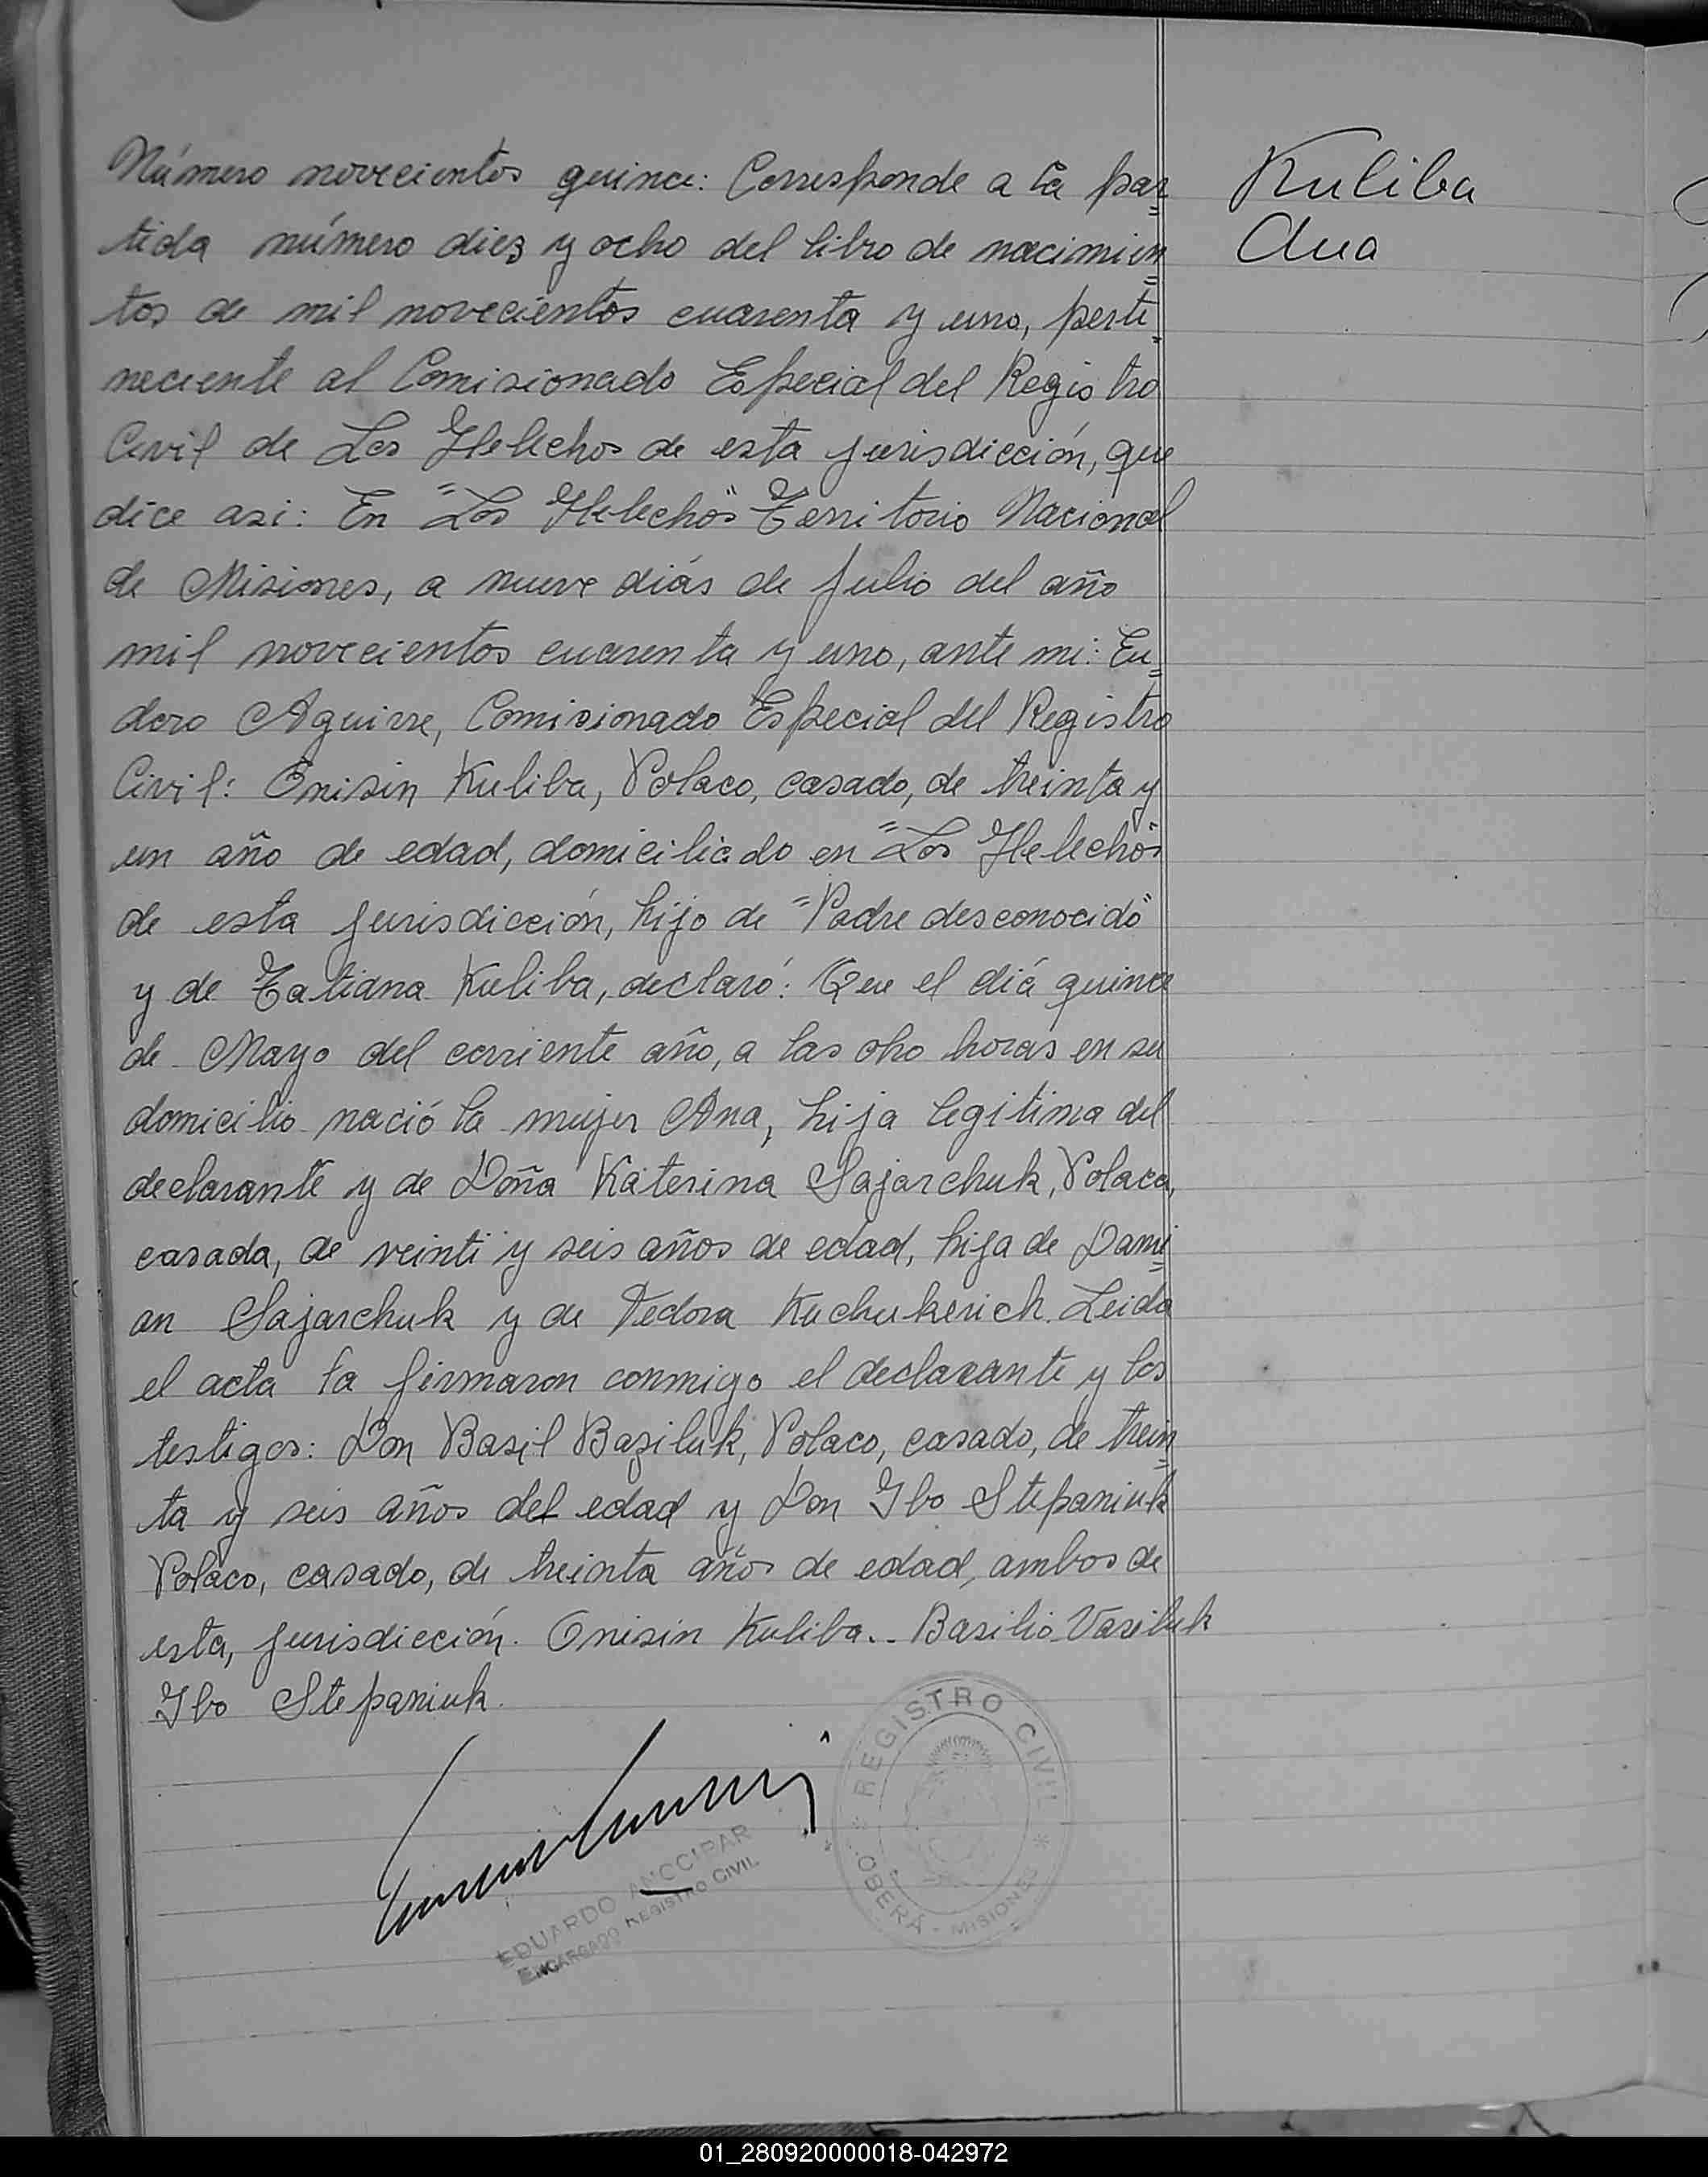 Número novecientos quince: Corresponde a la par=
tida número diez y ocho del libro de nacimien=
tos de mil novecientos cuarenta y uno, perte=
neciente al Comisionado Especial del Registro
Civil de Los Helechos de esta jurisdicción, que
dice asi: En "Los Helechos" Territorio Nacional
de Misiones, a nueve diás de Julio del año
mil novecientos cuarenta y uno, ante mi: Eu=
doro Aguirre, Comisionado Especial del Registro
Civil: Onisin Kuliba, Polaco, casado, de treinta y
un año de edad, domiciliado en "Los Helechos"
de esta jurisdicción, hijo de "Padre desconocido"
y de Tatiana Kuliba, declaró: Que el diá quince
de Mayo del corriente año, a las oho horas en su
domicilio nació la mujer Ana, hija legitima del
declarante y de Doña Katerina Sajarchuk, Polaca,
casada, de veinti y seis años de edad, hija de Dami=
an Sajarchuk y de Fedora Kuchukerich. Leida
el acta la firmaron conmigo el declarante y los
testigos: Don Basil Baziluk, Polaco, casado, de trein=
ta y seis años del edad y Don Ibo Stepaniuk
Polaco, casado, de treinta años de edad, ambos de
esta, jurisdicción. Onisin Kuliba.- Basilio Vasiluk
Ibo Stepaniuk.
Kuliba
Ana
EDUARDO ANCCIPAR
ENCARGADO REGISTRO CIVIL
REGISTRO CIVIL
OBERÁ - MISIONES
01_280920000018-042972